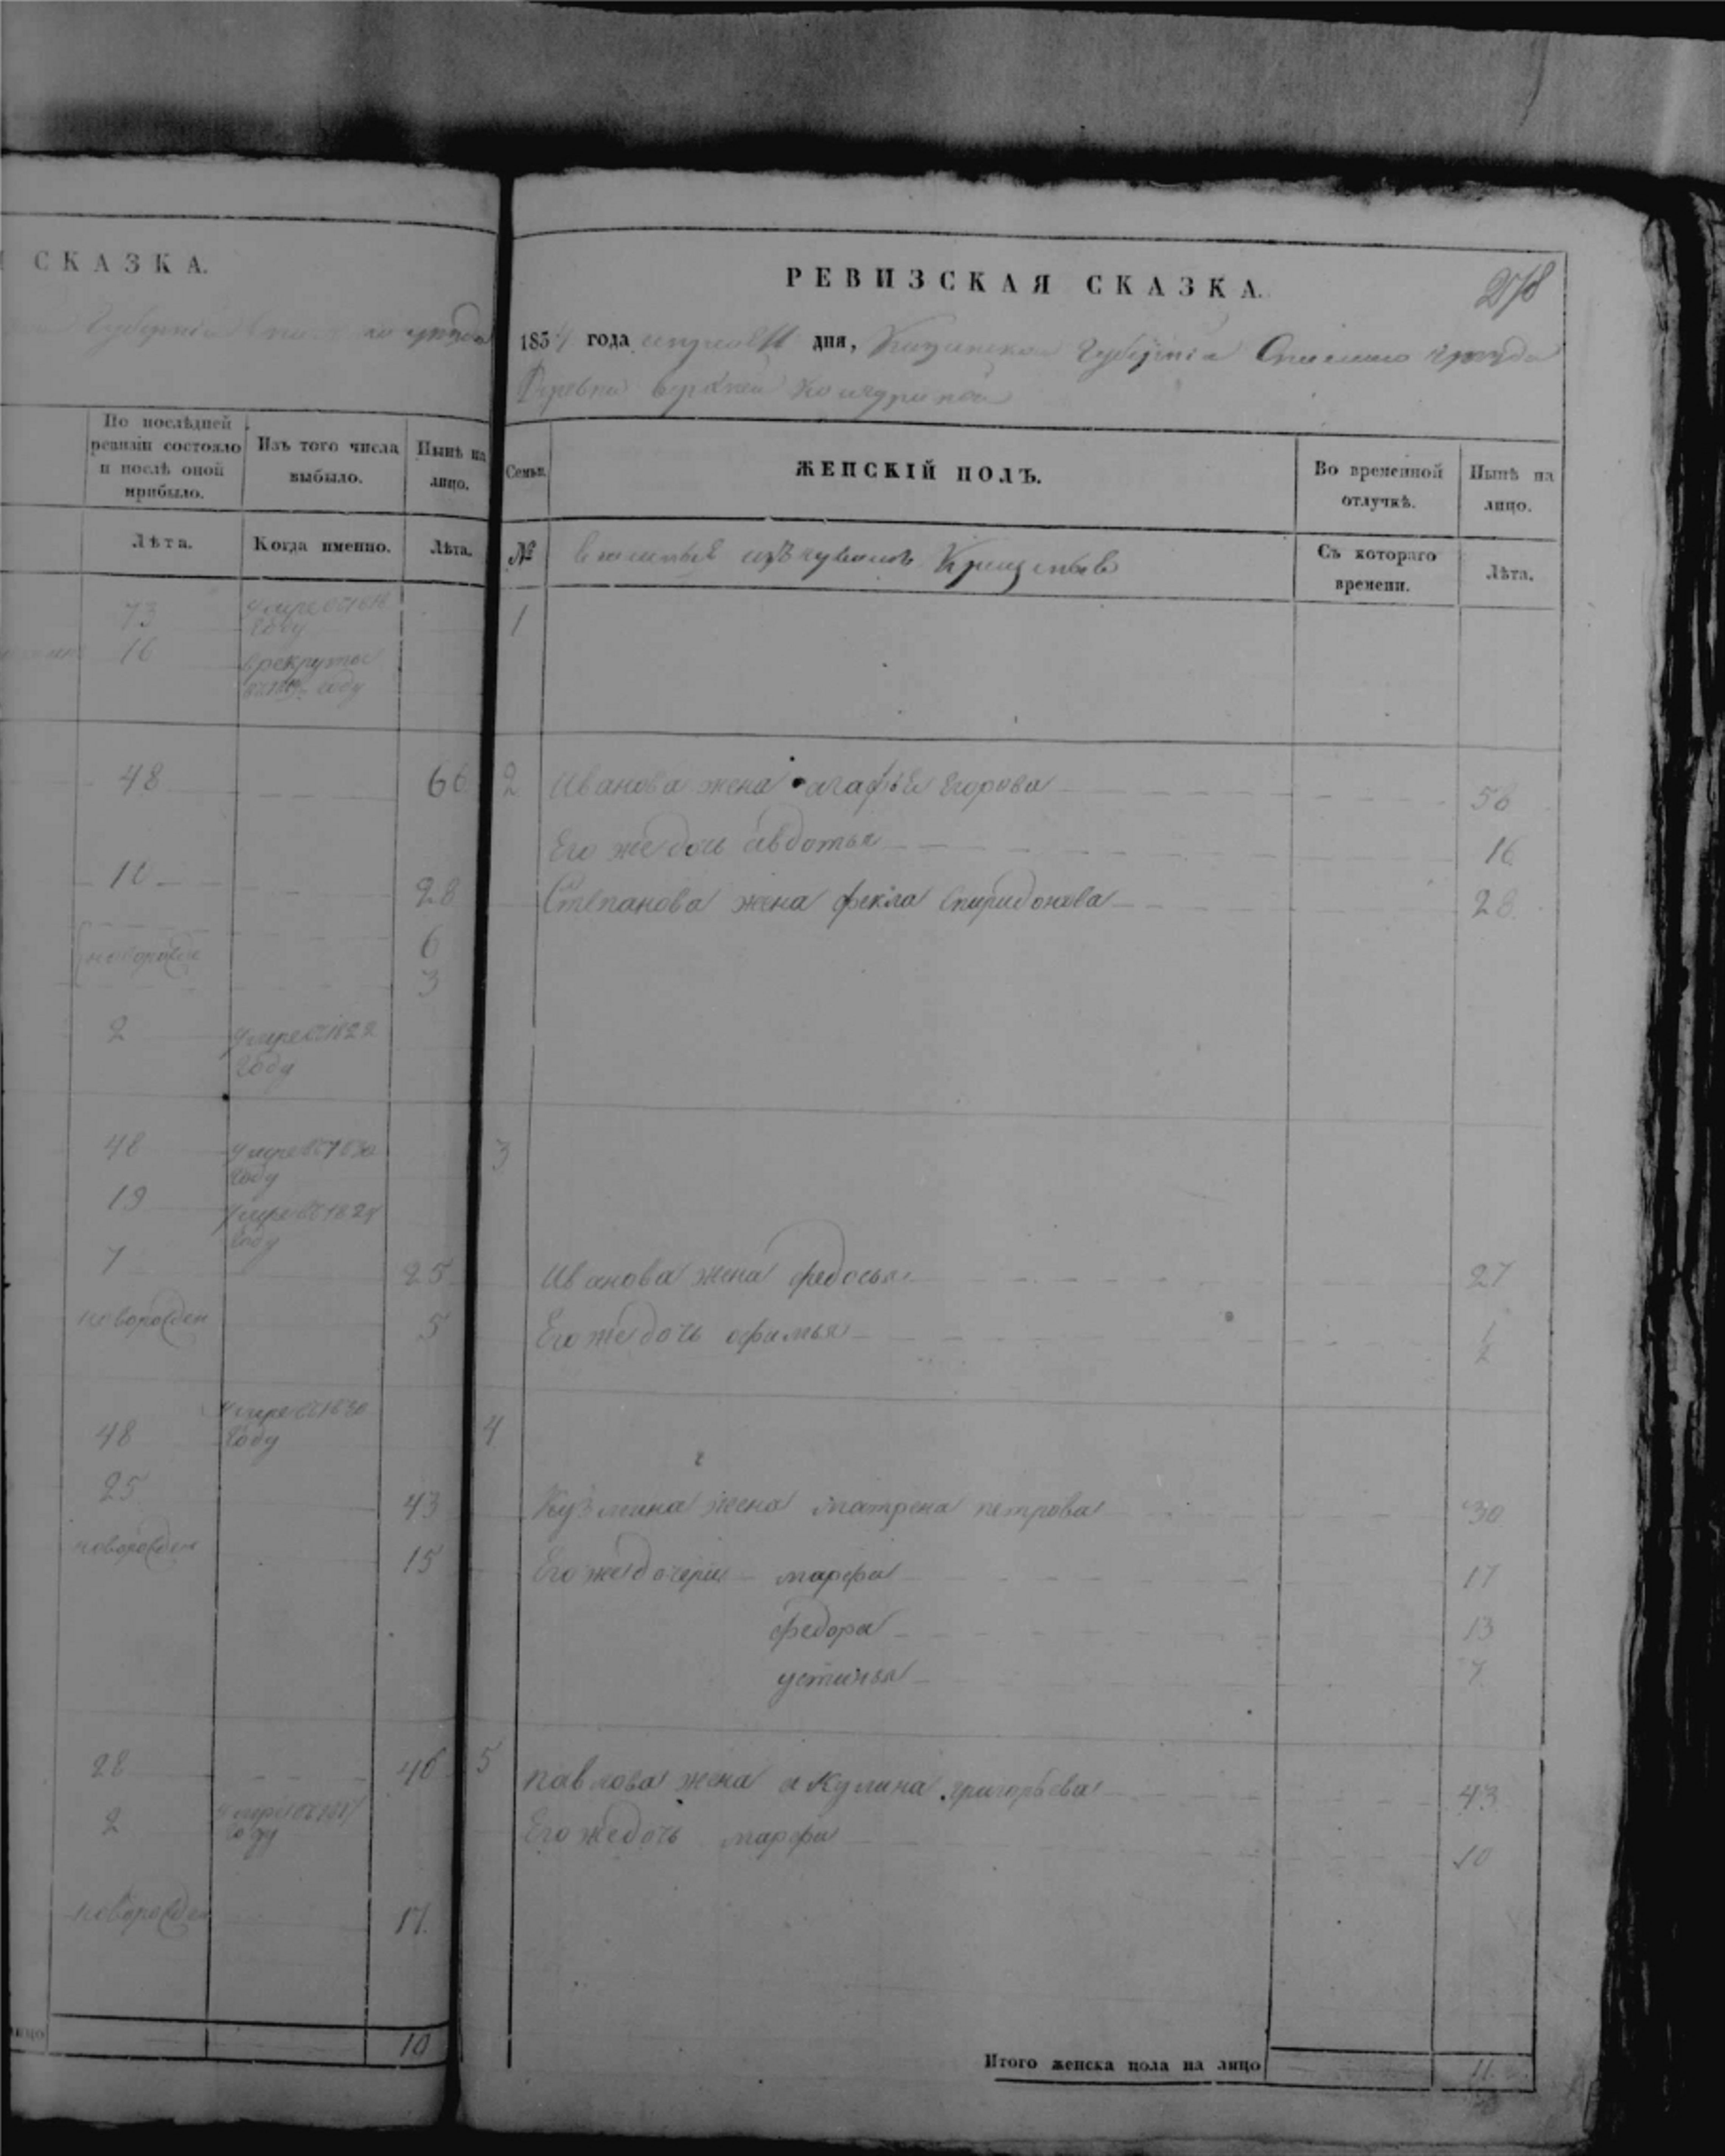 СКАЗКА.
Губерніи уезда
По послѣдней
ревизіи состояло
и послѣ оной
прибыло.
Изъ того числа
выбыло.
Нынѣ на
лицо.
Лѣта.
Когда именно.
Лѣта.
73
году
16
в рекруты
году
48 66
10 28
новорожден 6
3
2 умре в 1822
году
48 умре в
году
19 умре в 1824
году
7 25
новорожден 5
48 умре в 1830
году
25 43
новорожден 15
28 46
2 умре в
году
новорожден 17
лицо 10
278
РЕВИЗСКАЯ СКАЗКА.
1834 года апреля дня, Казанской Губерніи Спаского уезда
Деревни верхней
Семьи.
ЖЕНСКІЙ ПОЛЪ.
Во временной
отлучкѣ.
Нынѣ на
лицо.
№
изъ чувашъ
Съ котораго
времени.
Лѣта.
1
2 Иванова жена агафья Егорова 56
Его же дочь авдотья 16
Степанова жена фекла спиридонова 28
3
Иванова жена федосья 27
Его же дочь офимья 1/2
4
Кузмина жена матрена петрова 30
Его же дочери марфа 17
федора 13
устинья 7
5 павлова жена акулина григорьева 43
Его же дочь марфа 10
Итого женска пола на лицо 11